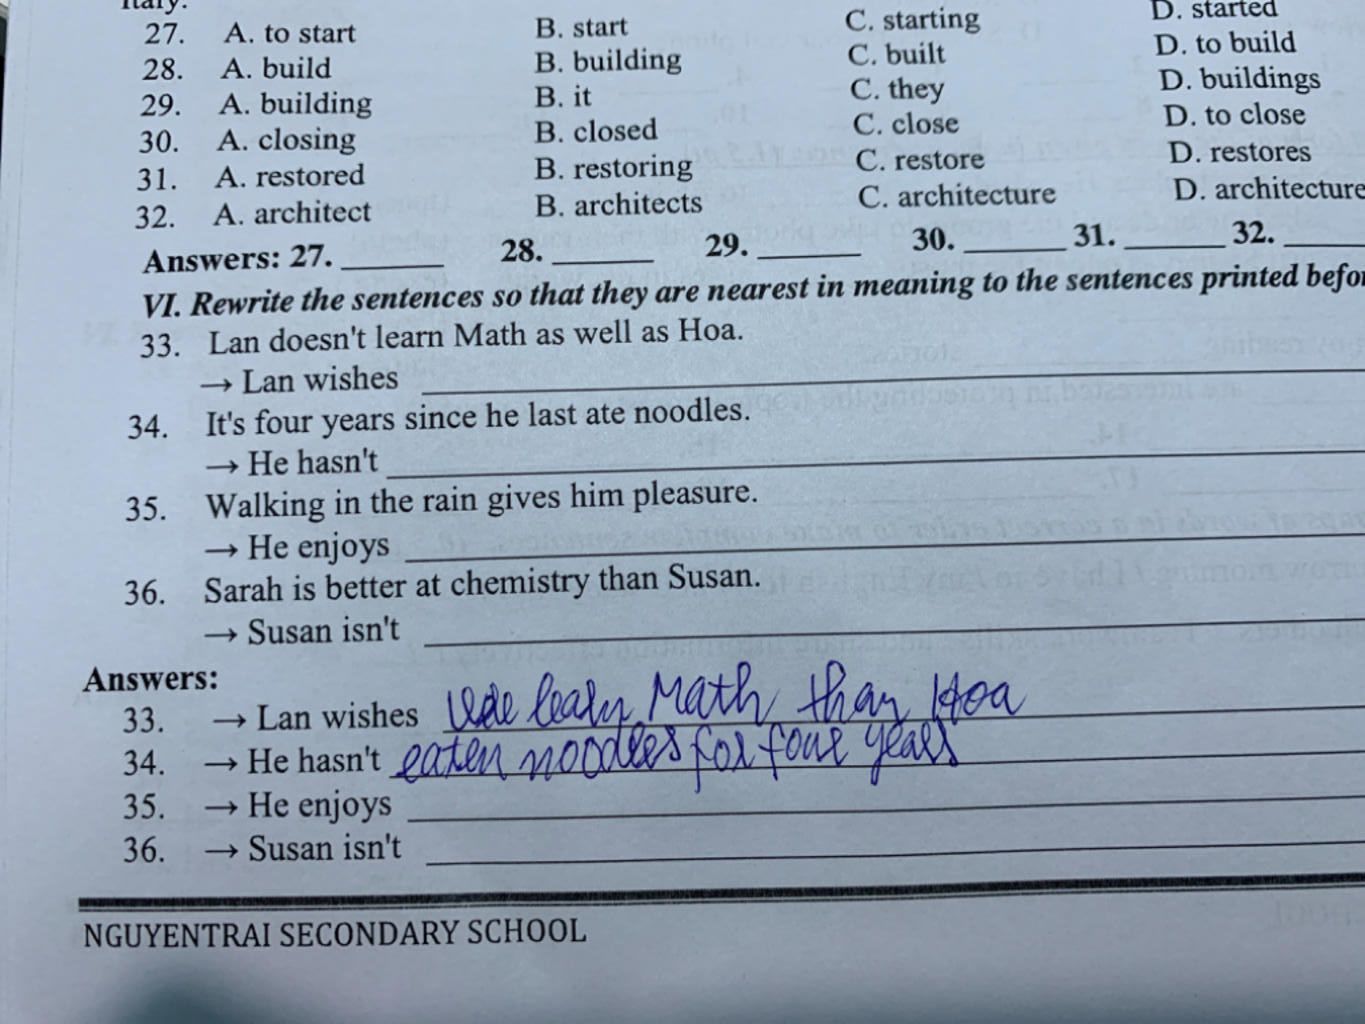 Italy.
27. A. to start B. start C. starting D. started
28. A. build B. building C. built D. to build
29. A. building B. it C. they D. buildings
30. A. closing B. closed C. close D. to close
31. A. restored B. restoring C. restore D. restores
32. A. architect B. architects C. architecture D. architecture
Answers: 27. ______ 28. ______ 29. ______ 30. ______ 31. ______ 32. ______
VI. Rewrite the sentences so that they are nearest in meaning to the sentences printed befor
33. Lan doesn't learn Math as well as Hoa.
→ Lan wishes
34. It's four years since he last ate noodles.
→ He hasn't
35. Walking in the rain gives him pleasure.
→ He enjoys
36. Sarah is better at chemistry than Susan.
→ Susan isn't
Answers:
33. → Lan wishes learn Math than Hoa
34. → He hasn't eaten noodles for four years
35. → He enjoys
36. → Susan isn't
NGUYENTRAI SECONDARY SCHOOL